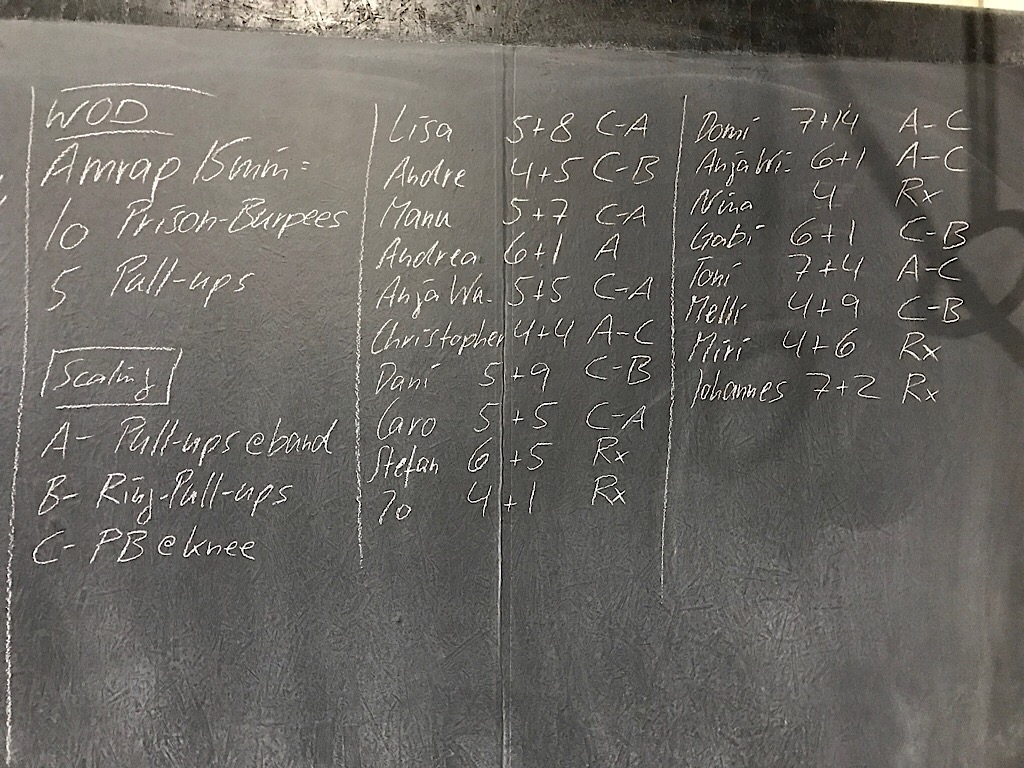 WOD
Amrap 15min:
10 Prison-Burpees
5 Pull-ups
Scaling
A- Pull-ups @band
B- Ring-Pull-ups
C- PB @knee
Lisa 5+8 C-A
Andre 4+5 C-B
Manu 5+7 C-A
Andrea 6+1 A
Anja Wu. 5+5 C-A
Christopher 4+4 A-C
Dani 5+9 C-B
Caro 5+5 C-A
Stefan 6+5 Rx
Jo 4+1 Rx
Domi 7+14 A-C
Anja Wi. 6+1 A-C
Nina 4 Rx
Gabi 6+1 C-B
Toni 7+4 A-C
Melli 4+9 C-B
Miri 4+6 Rx
Johannes 7+2 Rx